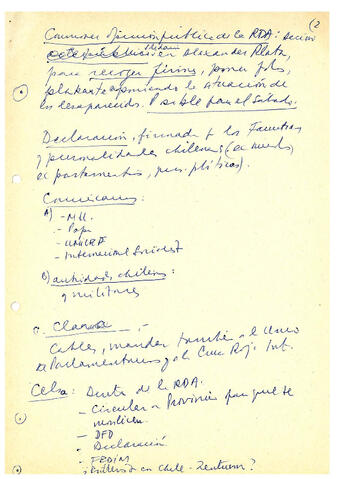 (2
Conmover opinión pública de la RDA: acción
en Alexander Platz,
para recoger firmas, poner fotos,
plakante exponiendo la situación de
los desaparecidos. Posible para el sábado.
Declaración, firmada + los Familiares
y personalidades chilenas (ex
ex parlamentarios, pers. políticas).
Comunicarnos:
A) - NU.
- Papa
- UNICEF
- Internacional Socialist
B) autoridades chilenas:
y militares
Cables, mandar también a la Unión
Parlamentaria y a la Cruz Roja Int.
Celsa: Dentro de la RDA.
- Circular a Provincia para que se
movilicen.
- DFD
- Declaración
- FEDIM
en Chile - Zentrum?